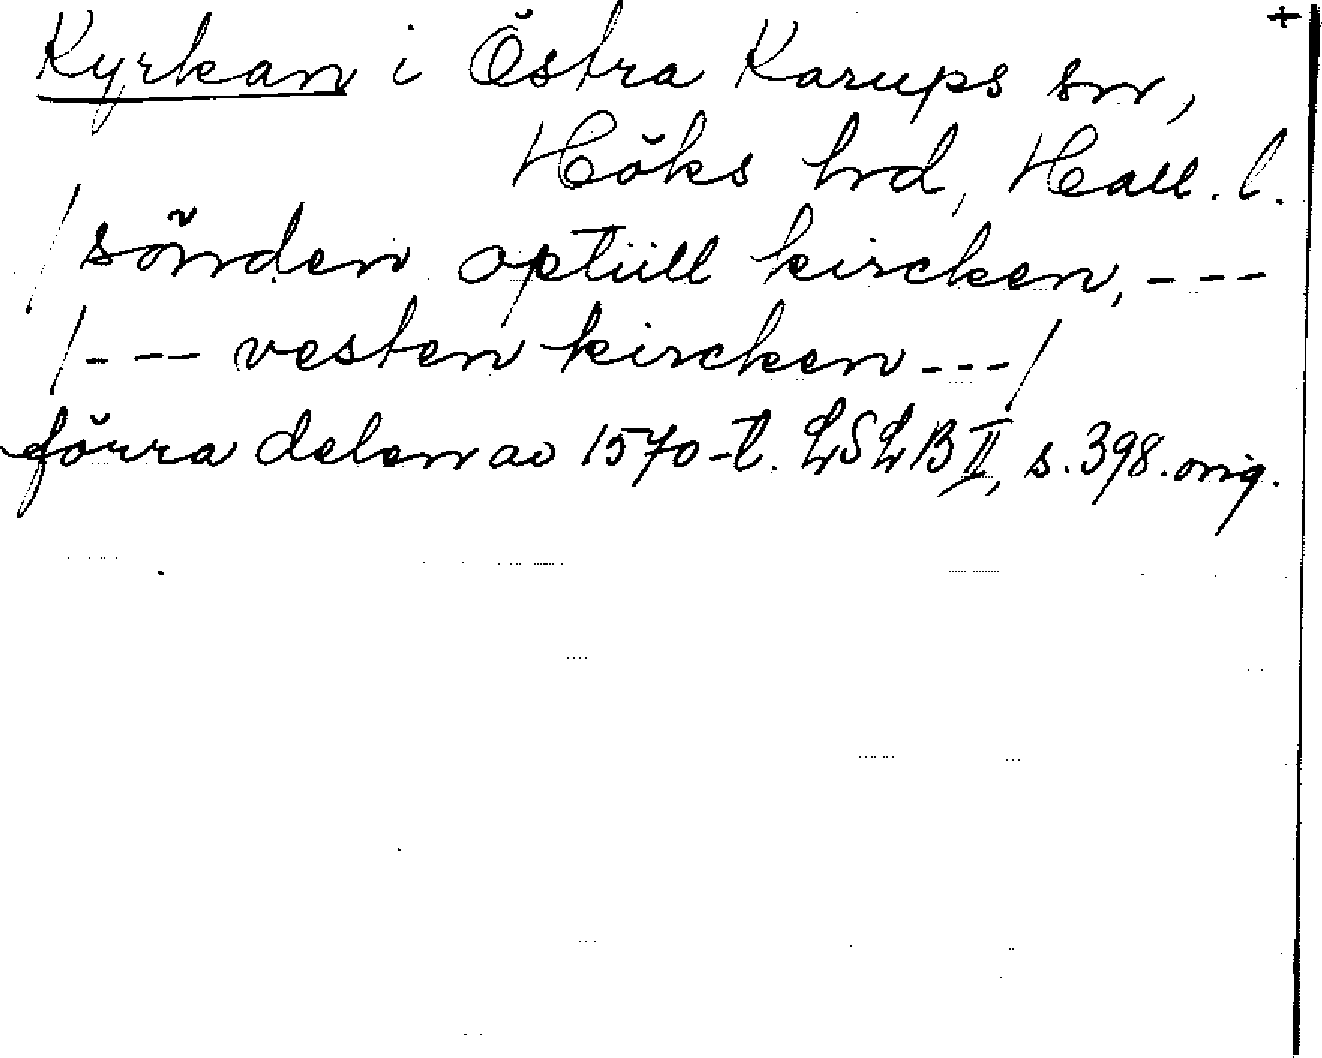 +
Kyrkan i Östra Karups sn,
Höks hrd, Hall. l.
/sönden optill kircken, ---
/--- vesten kircken ---/
förra delen av 1570-t. LSLB II, s. 398. orig.